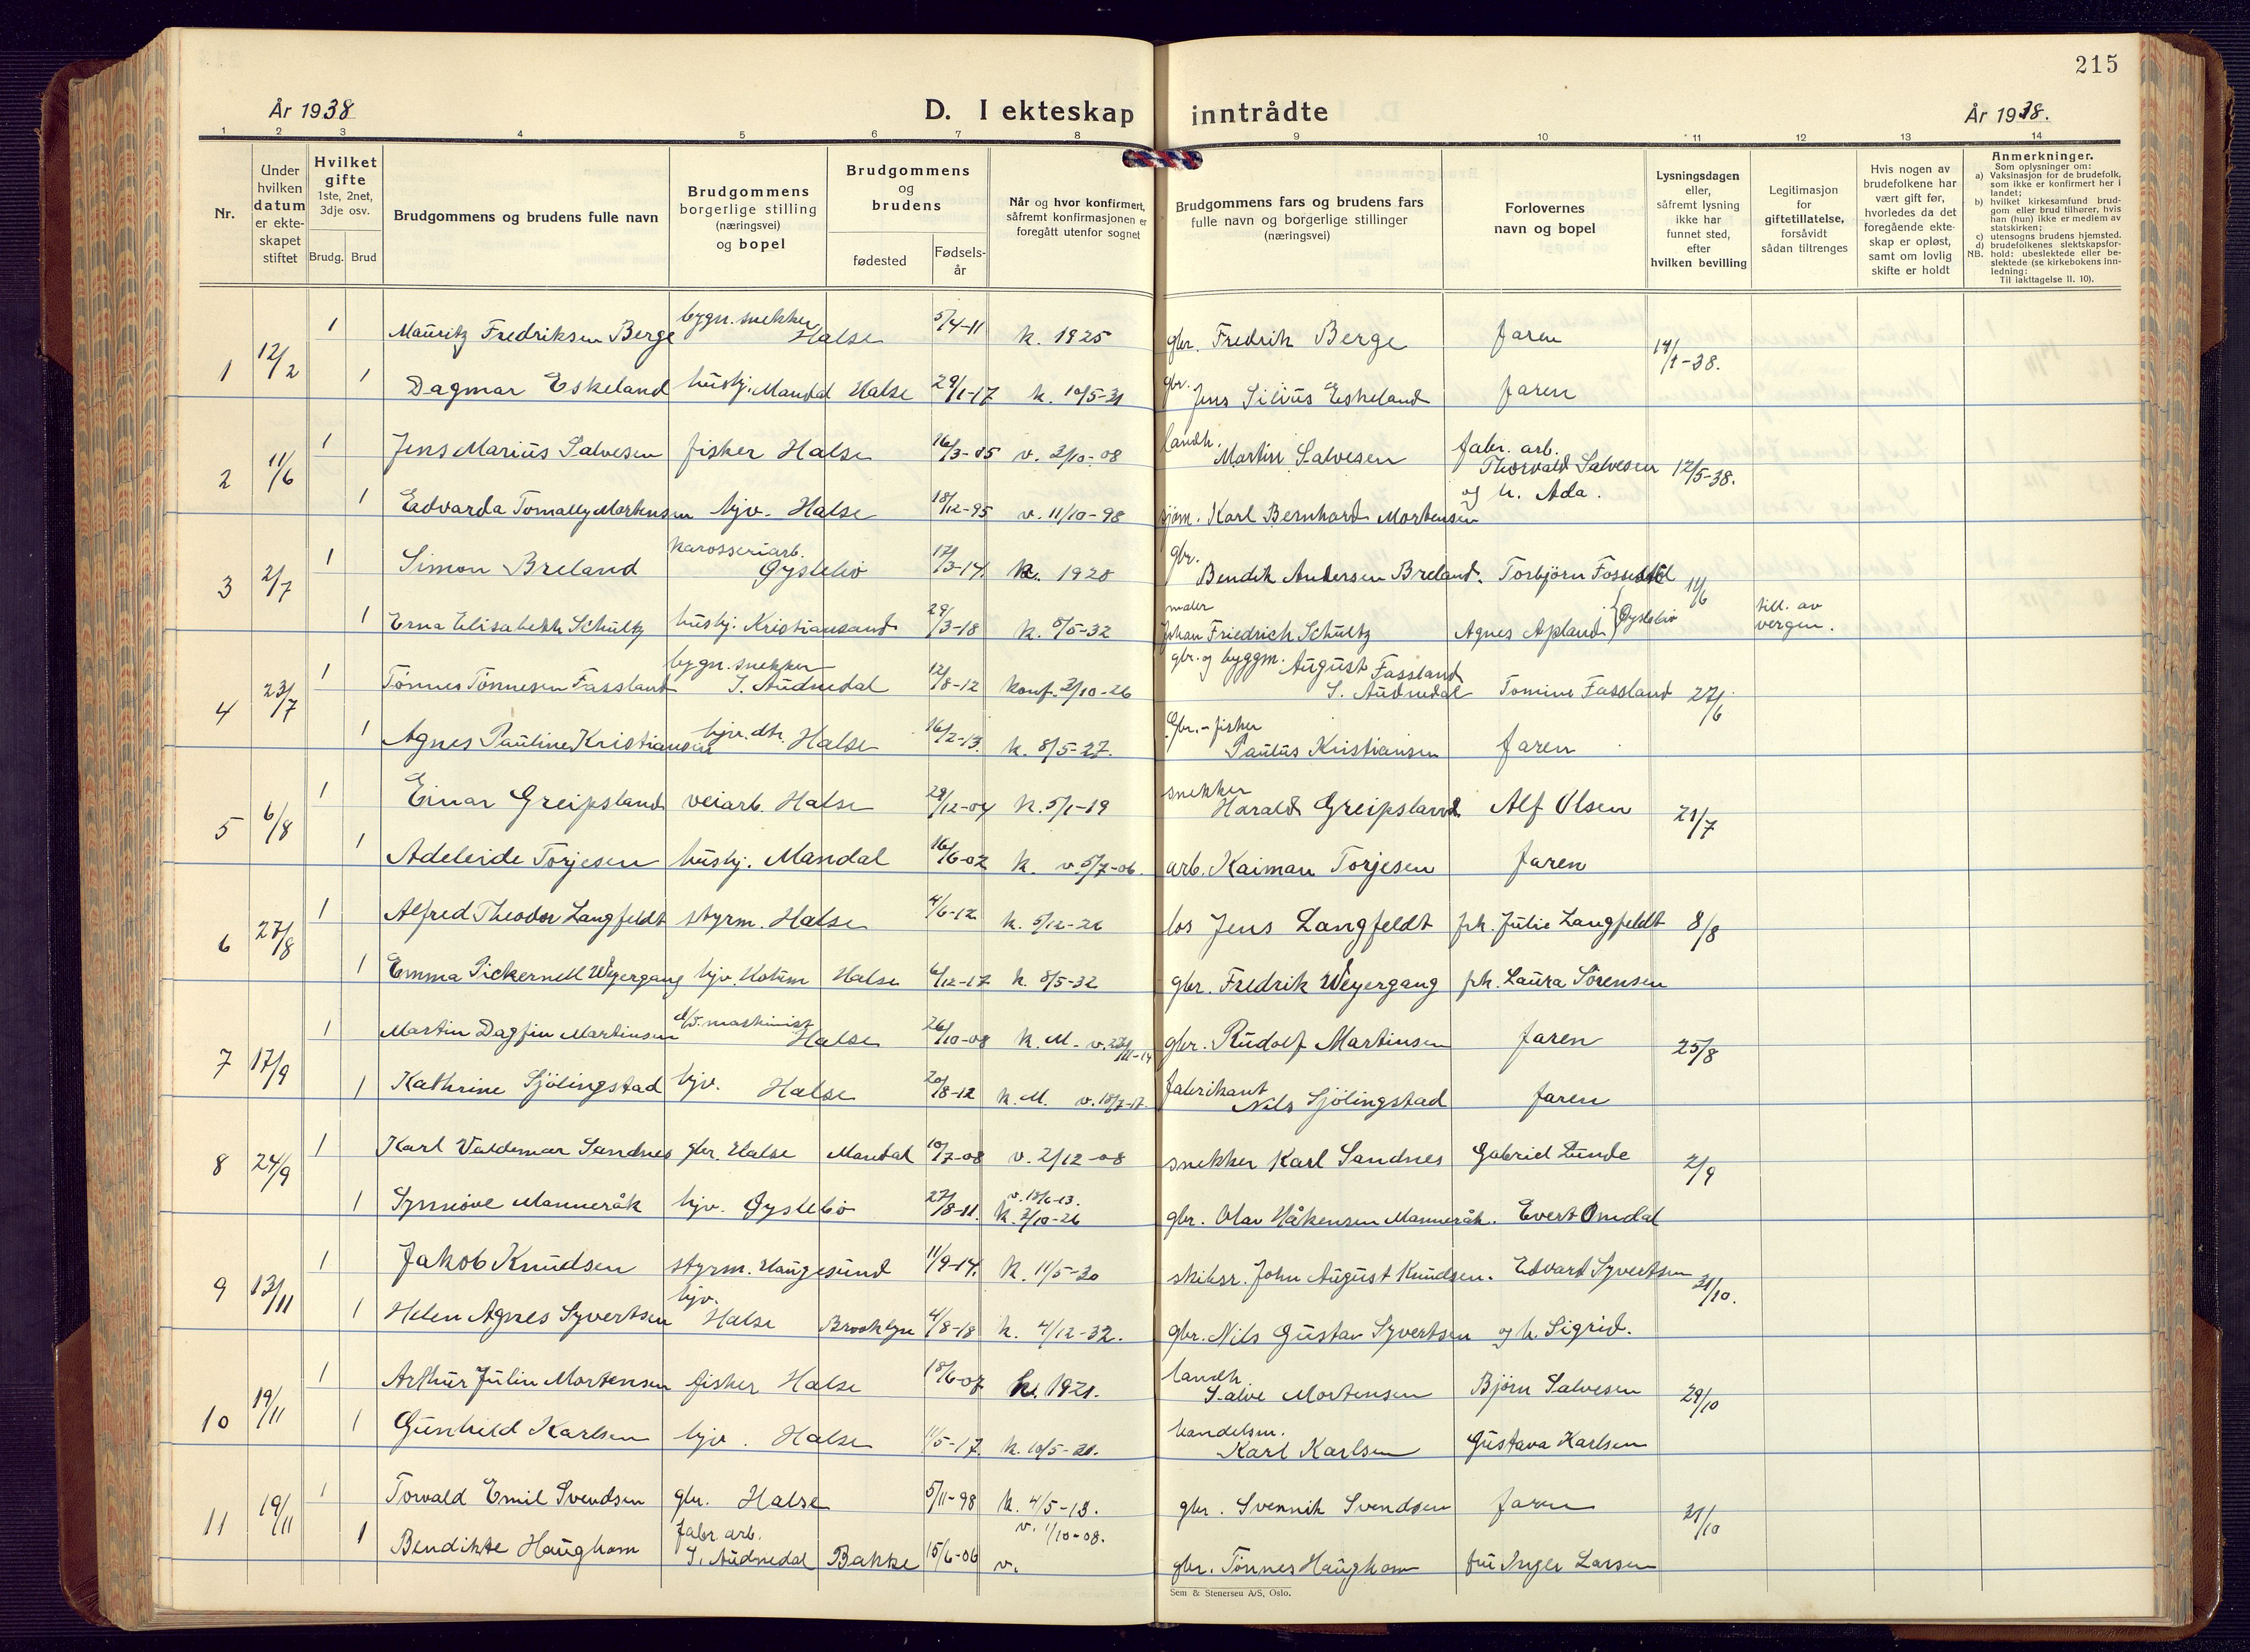 215
År 1938
D. I ekteskap inntrådte
År 1938.
1 2 3 4 5 6 7 8 9 10 11 12 13 14
Nr.
Under hvilken datum er ekteskapet stiftet
Hvilket gifte 1ste, 2net, 3dje osv.
Brudg. Brud
Brudgommens og brudens fulle navn
Brudgommens borgerlige stilling (næringsvei) og bopel
Brudgommens og brudens
fødested
Fødsels-år
Når og hvor konfirmert, såfremt konfirmasjonen er foregått utenfor sognet
Brudgommens fars og brudens fars fulle navn og borgerlige stillinger (næringsvei)
Forlovernes navn og bopel
Lysningsdagen eller, såfremt lysning ikke har funnet sted, efter hvilken bevilling
Legitimasjon for giftetillatelse, forsåvidt sådan tiltrenges
Hvis nogen av brudefolkene har vært gift før, hvorledes da det foregående ekteskap er opløst, samt om lovlig skifte er holdt
Anmerkninger.
Som oplysninger om:
a) Vaksinasjon for de brudefolk, som ikke er konfirmert her i landet;
b) hvilket kirkesamfund brudgom eller brud tilhører, hvis han (hun) ikke er medlem av statskirken;
c) utensogns brudens hjemsted.
d) brudefolkenes slektskapsforhold: ubeslektede eller beslektede (se kirkebokens innledning:
NB. Til iakttagelse II. 10).
1 12/2 1 Mauritz Fredriksen Berge bygn. snekker Halse 5/4-11 k. 1925 gbr. Fredrik Berge Faren 14/1-38.
1 Dagmar Eskeland hushj. Mandal Halse 29/1-17 k. 10/5-31 gbr. Jens Silius Eskeland Faren
2 11/6 1 Jens Marius Salvesen fisker Halse 16/3-05 v. 2/10-08 landh. Martin Salvesen fabr. arb. Thorvald Salvesen og h. Ada. 12/5-38.
1 Edvarda Tomally Mortensen hjv. Halse 18/12-95 v. 11/10-98 sjøm. Karl Bernhard Mortensen
3 2/7 1 Simon Breland karosseriarb. Øyslebø 17/3-14. k. 1928 gbr. Bendik Andersen Breland. Torbjörn Fossestøl 11/6
1 Erna Elisabeth Schultz hushj. Kristiansand 29/3-18 k. 8/5-32 maler Johan Friedrich Schultz Agnes Apland } Øyslebø till. av vergen.
4 23/7 1 Tönnes Tönnesen Fassland bygn. snekker S. Audnedal 12/8-12 konf. 3/10-26 gbr. og byggm. August Fassland S. Audnedal Tomine Fassland 27/6
1 Agnes Pauline Kristiansen hjv. dtr. Halse 16/2-13. k. 8/5-27. Gbr.-fisker Paulus Kristiansen Faren
5 6/8 1 Einar Greipsland veiarb. Halse 29/12-04 k. 5/1-19 snekker Harald Greipsland Alf Olsen 21/7
1 Adeleide Torjesen hushj. Mandal 16/6-02 k. v. 5/7-06. arb. Kaiman Torjesen Faren
6 27/8 1 Alfred Theodor Langfeldt styrm. Halse 4/6-12 k. 5/12-26 los Jens Langfeldt frk. Julie Langfeldt 8/8
1 Emma Pickernell Weyergang hjv. Holum Halse 6/12-17 k. 8/5-32 gbr. Fredrik Weyergang frk. Laura Sörensen
7 17/9 1 Martin Dagfin Martinsen maskinist Halse 26/10-08 k. M. - v. 22/11-14 gbr. Rudolf Martinsen Faren 25/8
1 Kathrine Sjölingstad hjv. Halse 20/8-12 k. M. v. 18/7-17. fabrikant Nils Sjölingstad Faren
8 24/9 1 Karl Valdemar Sandnes gbr. Halse Mandal 10/7-08 v. 2/12-08 snekker Karl Sandnes Gabriel Lunde 2/9
1 Synnöve Manneråk hjv. Øyslebø 27/8-11. v. 18/6-13. k. 3/10-26 gbr. Olav Håkensen Manneråk. Evert Omdal
9 13/11 1 Jakob Knudsen styrm. Haugesund 11/9-14. k. 11/5-30 skibsr. John August Knudsen. Edvard Syvertsen 21/10.
1 Helen Agnes Syvertsen hjv. Halse Brooklyn 4/8-18 k. 4/12-32. gbr. Nils Gustav Syvertsen og h. Sigrid.
10 19/11 1 Arthur Julin Mortensen fisker Halse 18/6-07 k. 1921. landh. Salve Mortensen Björn Salvesen 29/10
1 Gunhild Karlsen hjv. Halse 11/5-17. k. 10/5-31. handelsm. Karl Karlsen Gustava Karlsen
11 19/11 1 Torvald Emil Svendsen gbr. Halse 5/11-98 k. 4/5-13. gbr. Svennik Svendsen Faren 31/10
1 Bendikte Haughom fabr. arb. S. Audnedal Bakke 15/6-06 v. 1/10-08. v. gbr. Tönnes Haughom fru Inger Larsen
Sem & Stenersen A/S, Oslo.